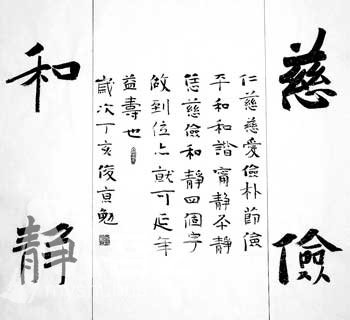 慈儉
仁慈慈愛儉朴節儉
平和和諧甯静安静
慈儉和静四個字
做到位上就可延年
益壽也
歲次丁亥俊
和静